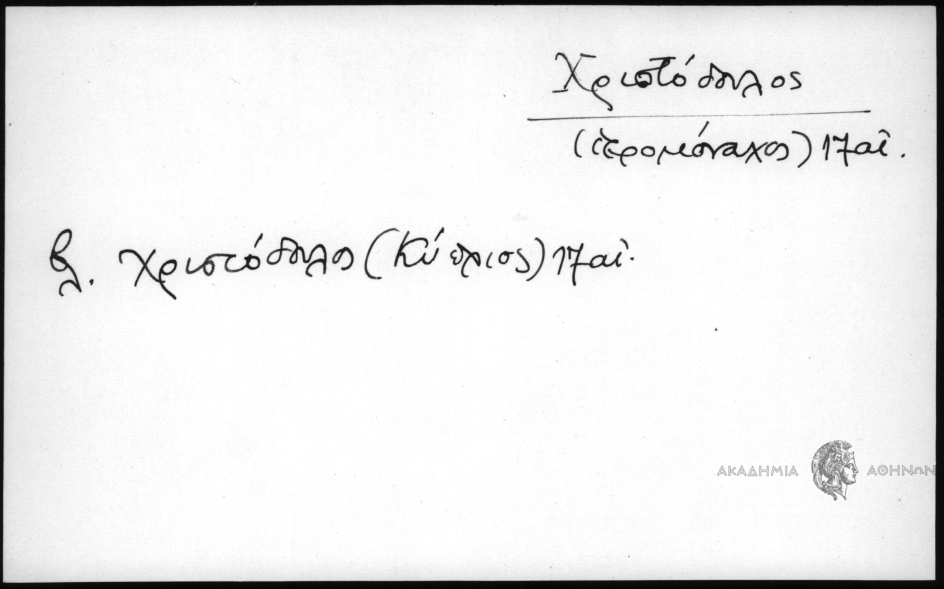 Χριστόδουλος
(ἱερομόναχος) 17 αἰ.
βλ. Χριστόδουλος (Κύπριος) 17 αἰ.
ΑΚΑΔΗΜΙΑ ΑΘΗΝΩΝ